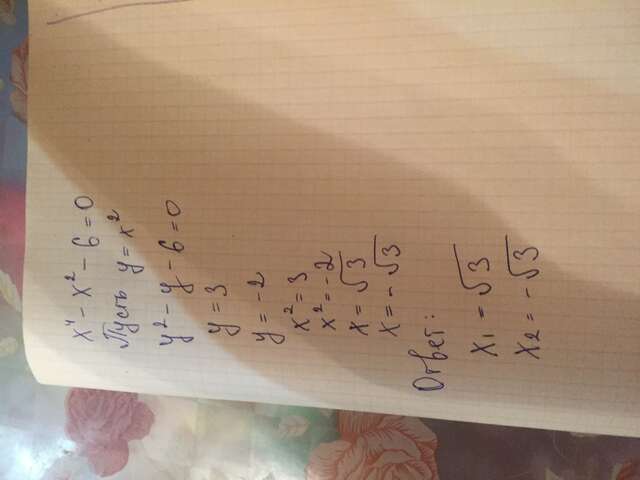 x⁴ - x² - 6 = 0
Пусть y = x²
y² - y - 6 = 0
y = 3
y = -2
x² = 3
x² = -2
x = √3
x = -√3
Ответ:
x₁ = √3
x₂ = -√3